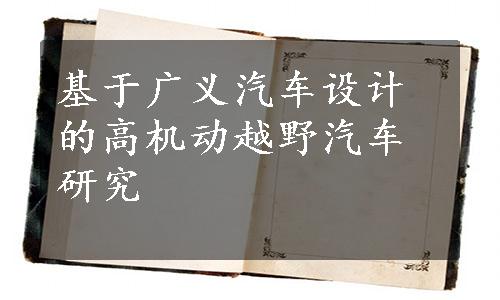 基于广义汽车设计
的高机动越野汽车
研究